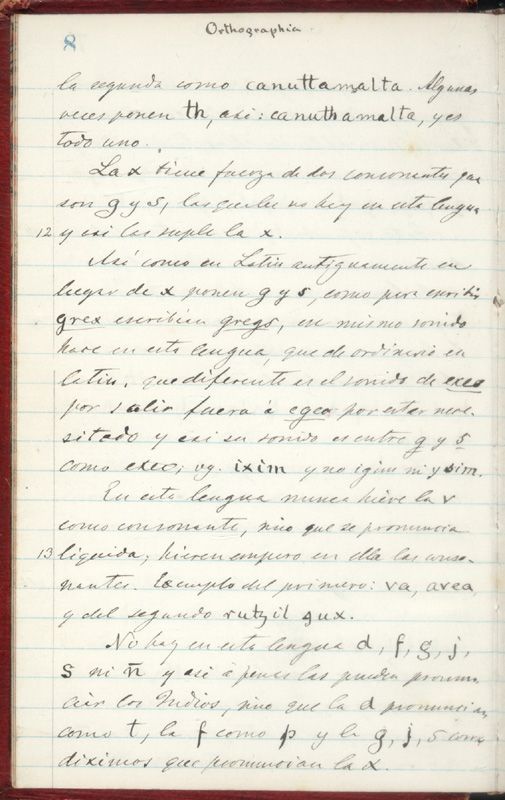 8
Orthographia
la segunda como canuttamalta. Algunas
veces ponen th, asi: canuthamalta, y es
todo uno.
La x tiene fuerza de dos consonantes que
son g y s, las quales no hay en esta lengua
12 y asi las suple la x.
Asi como en Latin antiguamente en
lugar de x ponen g y s, como para escribir
grex escribian gregs, en mismo sonido
hace en esta lengua, que de ordinario en
latin, que diferente es el sonido de exeo
por salir fuera á egeo por estar nece-
sitado y asi su sonido es entre g y s
como exeo; vg. ixim y no igim ni ysim.
En esta lengua nunca hiere la v
como consonante, sino que se pronuncia
13 liquida; hieren empero en ella las conso-
nantes. Exemplo del primero: va, avea
y del segundo rutzil qux.
No hay en esta lengua d, f, g, j,
s ni ñ y asi á penas las pueden pronun-
ciar los Indios, sino que la d pronuncian
como t, la f como p y la g, j, s como
diximos que pronuncian la x.